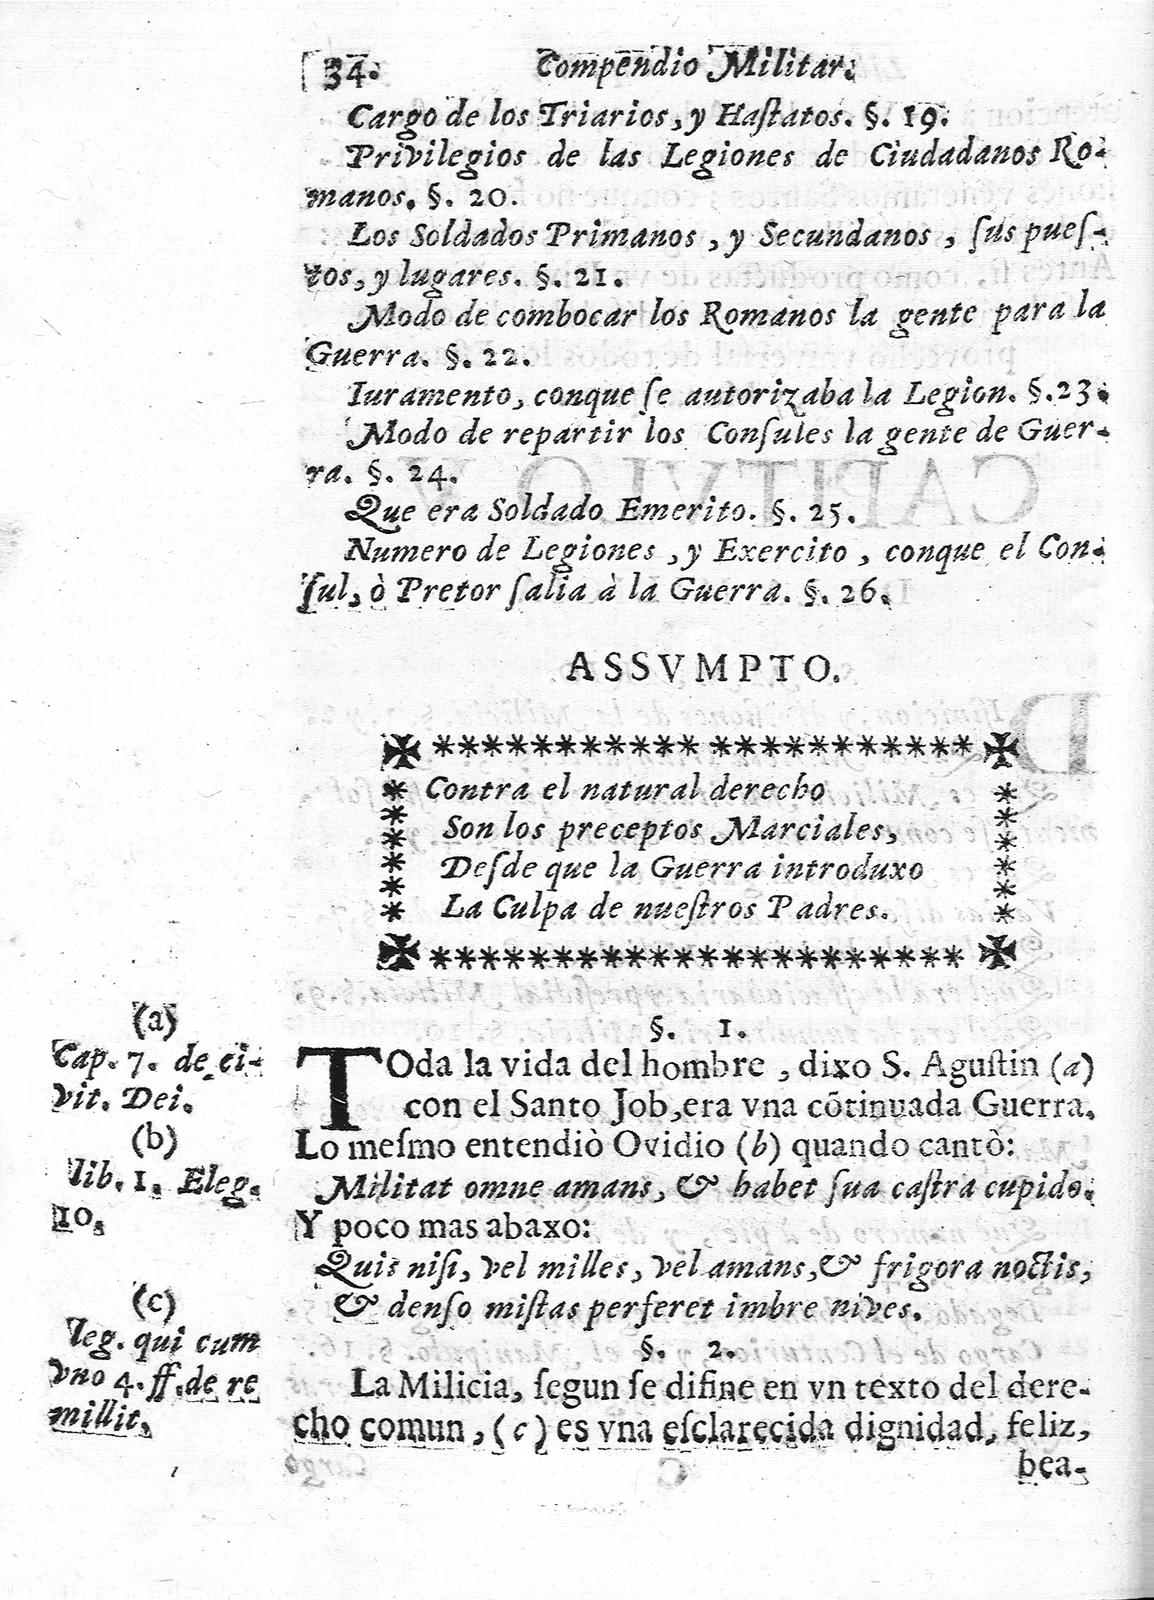 34.
Compendio Militar.
Cargo de los Triarios, y Haſtatos. §. 19.
Privilegios de las Legiones de Ciudadanos Ro-
manos. §. 20.
Los Soldados Primanos, y Secundanos, ſus pueſ-
tos, y lugares. §. 21.
Modo de combocar los Romanos la gente para la
Guerra. §. 22.
Iuramento, conque ſe autorizaba la Legion. §. 23.
Modo de repartir los Conſules la gente de Guer-
ra. §. 24.
Que era Soldado Emerito. §. 25.
Numero de Legiones, y Exercito, conque el Con-
ſul, ò Pretor ſalia à la Guerra. §. 26.
ASSVMPTO.
Contra el natural derecho
Son los preceptos Marciales,
Deſde que la Guerra introduxo
La Culpa de nueſtros Padres.
§. 1.
TOda la vida del hombre, dixo S. Aguſtin (a)
con el Santo Job, era vna cõtinuada Guerra.
Lo meſmo entendiò Ovidio (b) quando cantò:
Militat omne amans, & habet ſua caſtra cupido.
Y poco mas abaxo:
Quis niſi, vel milles, vel amans, & frigora noctis,
& denſo miſtas perferet imbre nives.
§. 2.
La Milicia, ſegun ſe difine en vn texto del dere-
cho comun, (c) es vna eſclarecida dignidad, feliz,
bea-
(a)
Cap. 7. de ci-
vit. Dei.
(b)
lib. 1. Eleg.
10.
(c)
leg. qui cum
vno 4. ff. de re
millit.